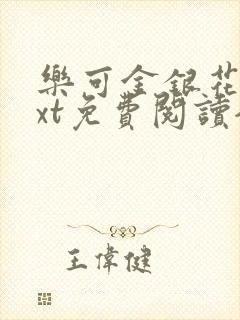 樂可金銀花
xt免費閱讀
王偉健